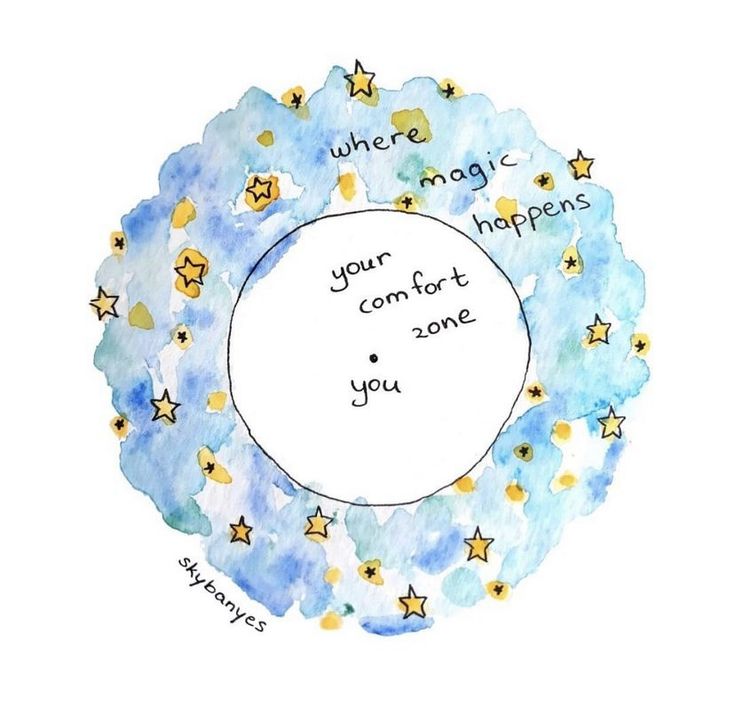 where
magic
happens
your
comfort
zone
you
skybanyes